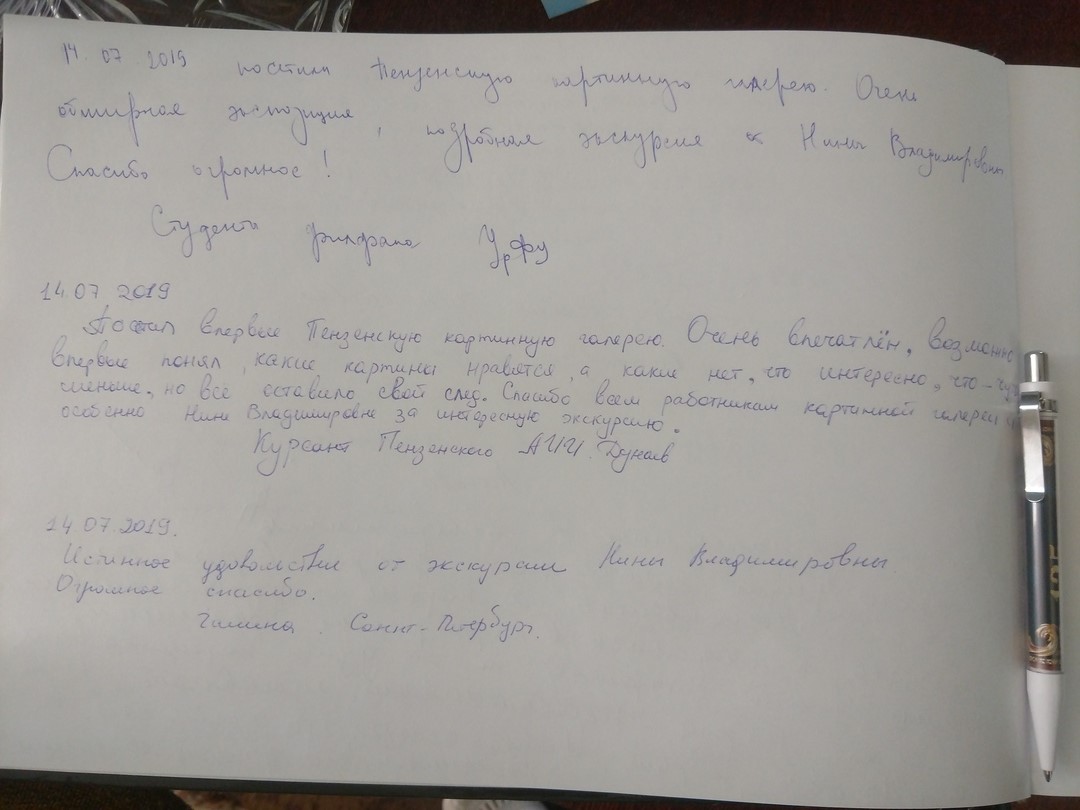 14. 07 2019 посетили Пензенскую картинную галерею. Очень
обширная экспозиция, подробная экскурсия от Нины Владимировны
Спасибо огромное!
Студенты филфака УрФУ
14.07 2019
Посетил впервые Пензенскую картинную галерею. Очень впечатлён, возможно
впервые понял, какие картины нравятся, а какие нет, что интересно, что-
меньше, но все оставило свой след. Спасибо всем работникам картинной галереи
особенно Нине Владимировне за интересную экскурсию.
Курсант Пензенского АИИ. Дунаев
14.07.2019.
Истинное удовольствие от экскурсии Нины Владимировны.
Огромное спасибо.
Галина. Санкт-Петербург.